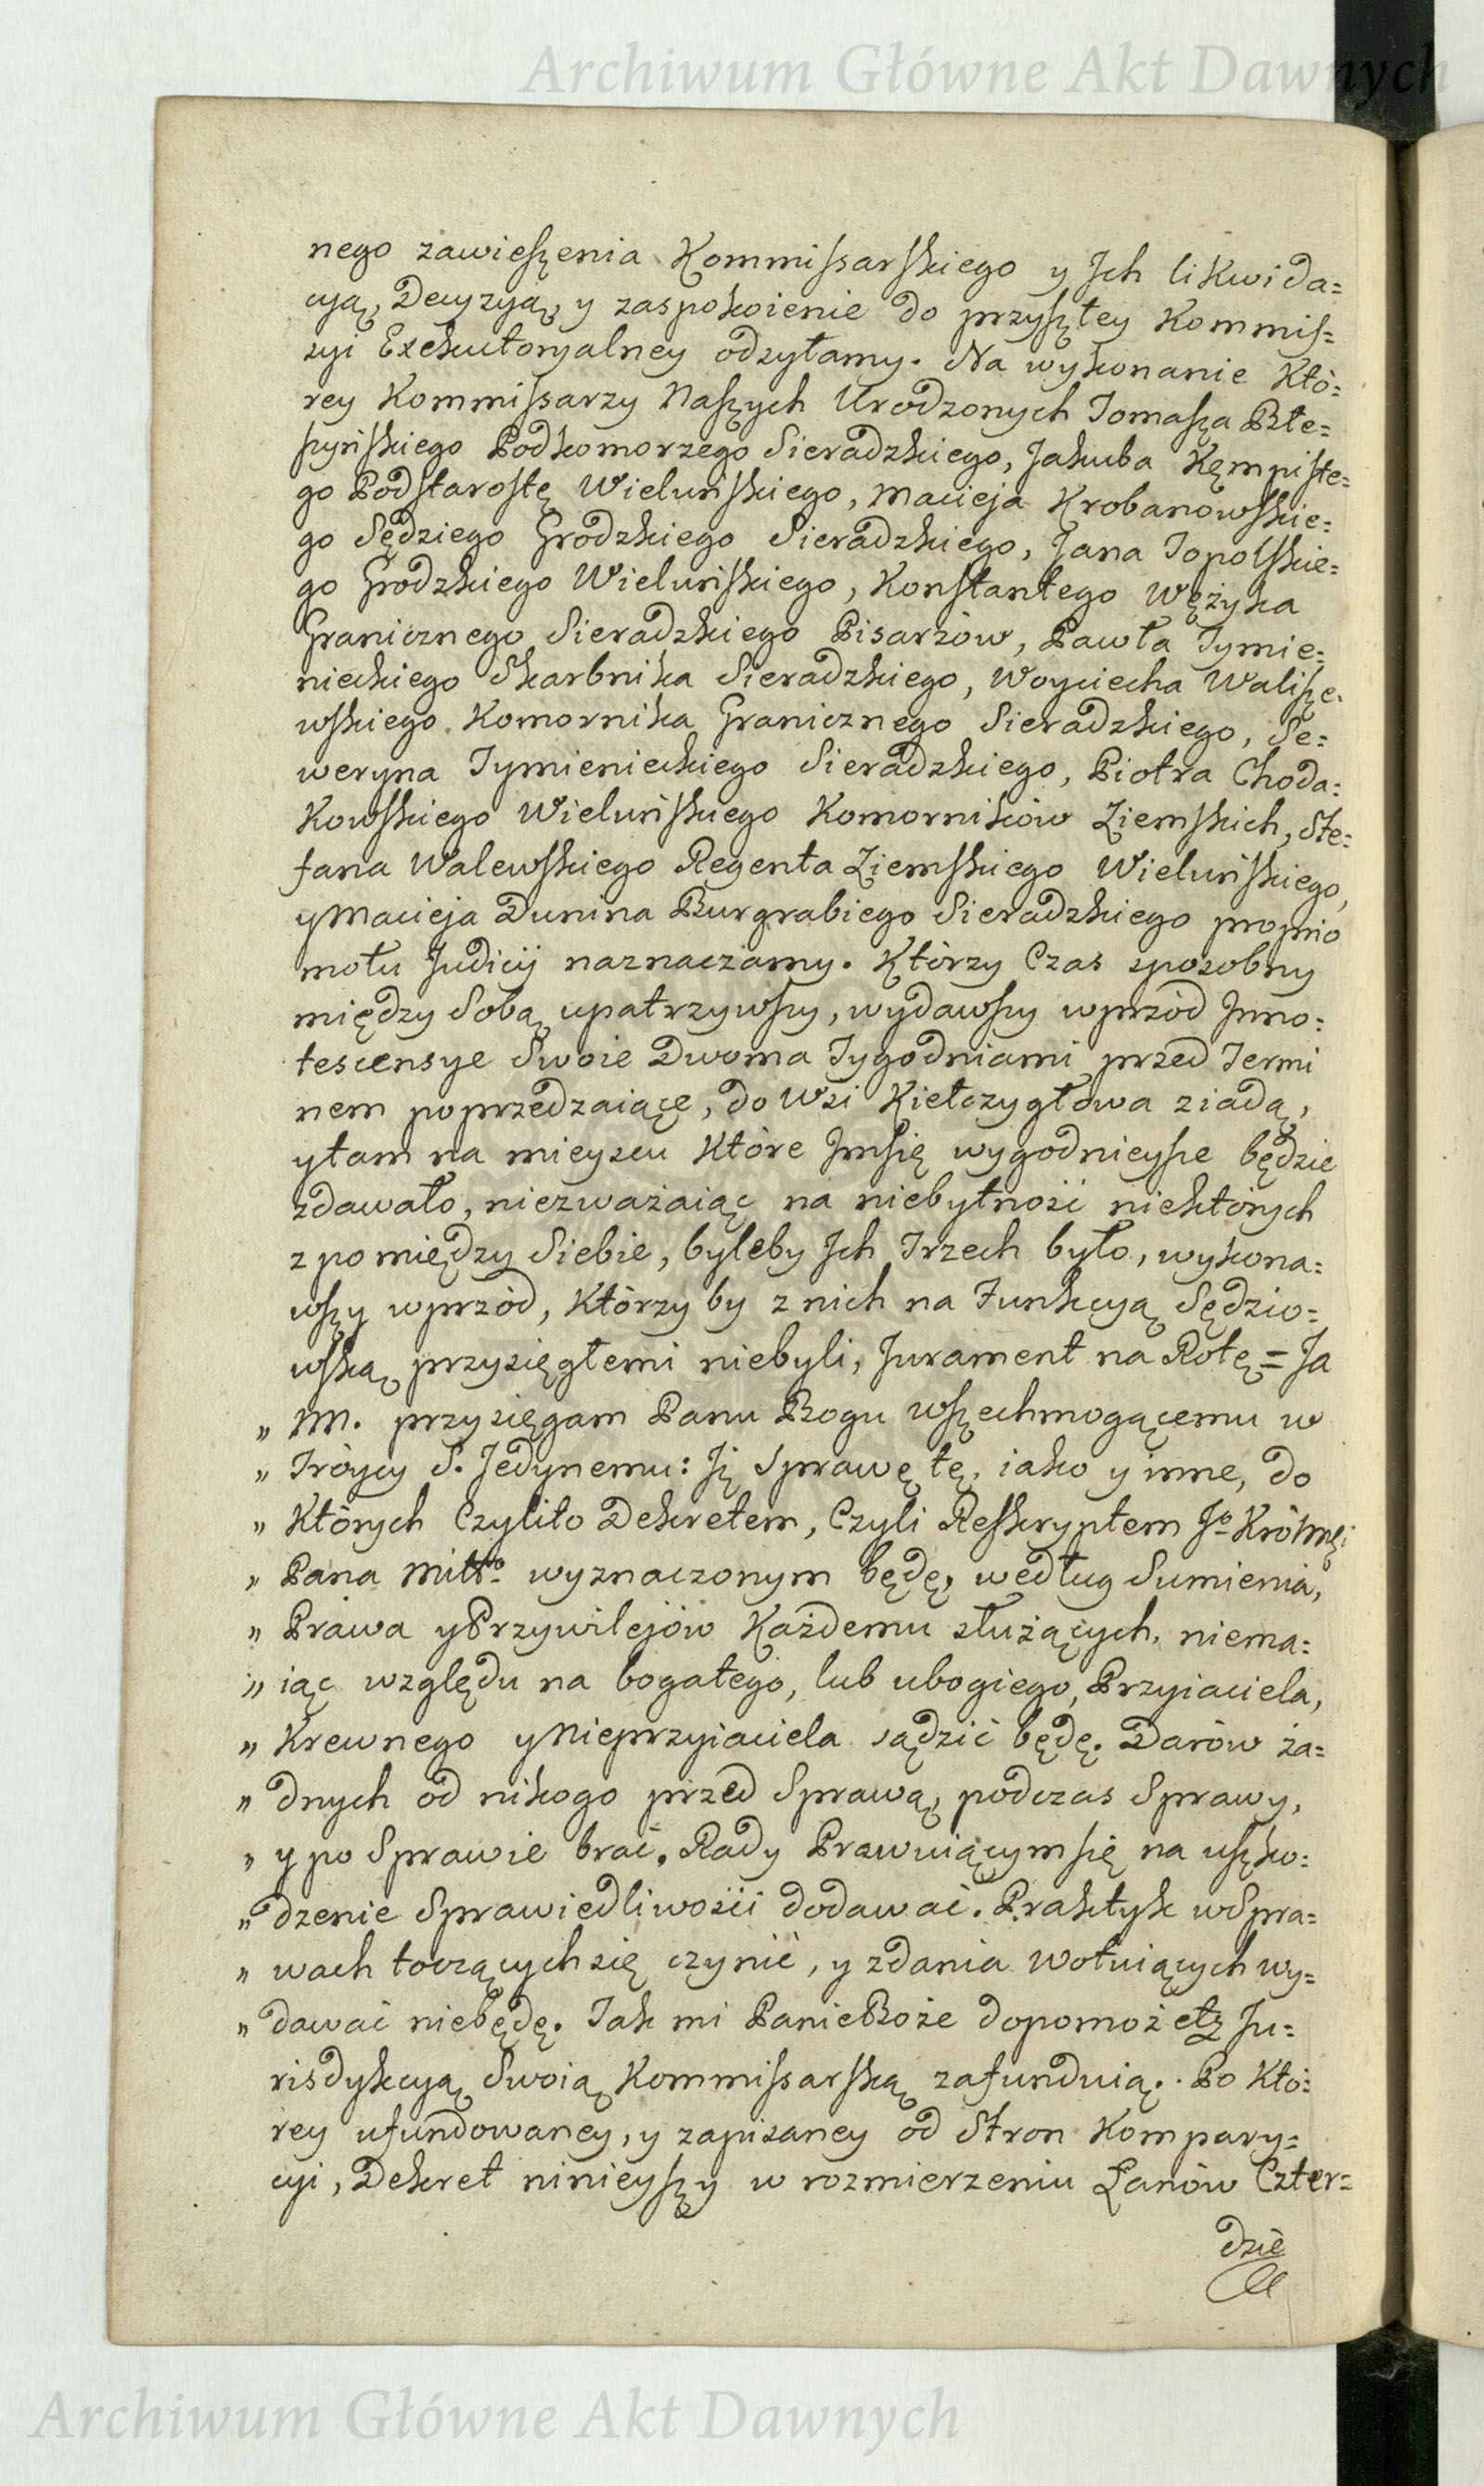 Archiwum Główne Akt Dawnych
nego zawieszenia Kommissarskiego y Ich likwida=
cyą, Decyzyą, y zaspokoienie do przyszłey Kommis=
syi Exekutoryalney odsyłamy. Na wykonanie Któ=
rey Kommissarzy Naszych Urodzonych Tomasza Błe=
szyńskiego Podkomorzego Sieradzkiego, Jakuba Kempiste=
go Podstarostę Wieluńskiego, Macieja Krobanowskie=
go Sędziego Grodzkiego Sieradzkiego, Jana Topolskie=
go Grodzkiego Wieluńskiego, Konstantego Wężyka
Granicznego Sieradzkiego Pisarzów, Pawła Tymie=
nieckiego Skarbnika Sieradzkiego, Woyciecha Walisze=
wskiego Komornika Granicznego Sieradzkiego, Se=
weryna Tymienieckiego Sieradzkiego, Piotra Choda=
Kowskiego Wieluńskiego Komorników Ziemskich, Ste=
fana Walewskiego Regenta Ziemskiego Wieluńskiego,
y Macieja Dunina Burgrabiego Sieradzkiego proprio
motu Judicij naznaczamy. Którzy Czas sposobny
między Sobą upatrzywszy, wydawszy wprzód Inno=
tescensye Swoie Dwoma Tygodniami przed Termi
nem poprzedzaiące, do Wsi Kiełczygłowa ziadą,
y tam na mieyscu Które Im się wygodnieysze będzie
zdawało, niezważaiąc na niebytność niektórych
z pomiędzy Siebie, byleby Ich Trzech było, wykona=
wszy wprzód, Którzy by z nich na Funkcyą Sędzio=
wską przysięgłemi niebyli, Jurament na Rotę = Ja
„ M. przysięgam Panu Bogu wszechmogącemu w
„ Tróycy S. Jedynemu: Iż Sprawę tę, iako y inne, do
„ Których Czylito Dekretem, Czyli Reskryptem Jo Królmći
„ Pana Miłło wyznaczonym będę, według Sumienia,
„ Prawa y Przywilejów Każdemu służących, niema=
„ iąc względu na bogatego, lub ubogiego, Przyiaciela,
„ Krewnego y Nieprzyiaciela sądzić będę. Darów ża=
„ dnych od nikogo przed Sprawą, podczas Sprawy,
„ y po Sprawie brać, Rady Prawuiącym się na uszko=
„ dzenie Sprawiedliwości dodawać. Praktyk w Spra=
„ wach toczących się czynić, y zdania Wotuiących wy=
„ dawać niebędę. Tak mi Panie Boże dopomoż etz Ju=
risdykcyą Swoią Kommissarską zafunduią. Po Któ=
rey ufundowaney, y zapisaney od Stron Kompary=
cyi, Dekret ninieyszy w rozmierzeniu Łanów Czter=
dzie
Archiwum Główne Akt Dawnych